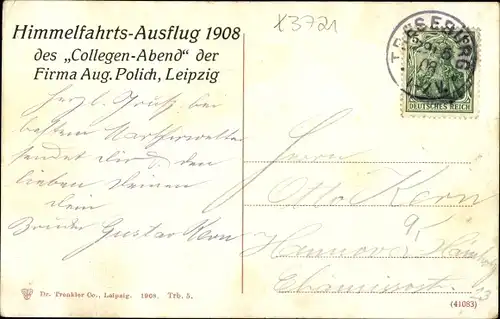 Himmelfahrts-Ausflug 1908
des „Collegen-Abend“ der
Firma Aug. Polich, Leipzig
x3721
TRESEBURG
DEUTSCHES REICH
Herzl. Gruß bei
bestem
sendet Dir & den
lieben Deinen
Dein
Bruder Gustav Kern
Herrn
Otto Kern
Hannover
23
Dr. Trenkler Co., Leipzig. 1908. Trb. 5.
(41083)